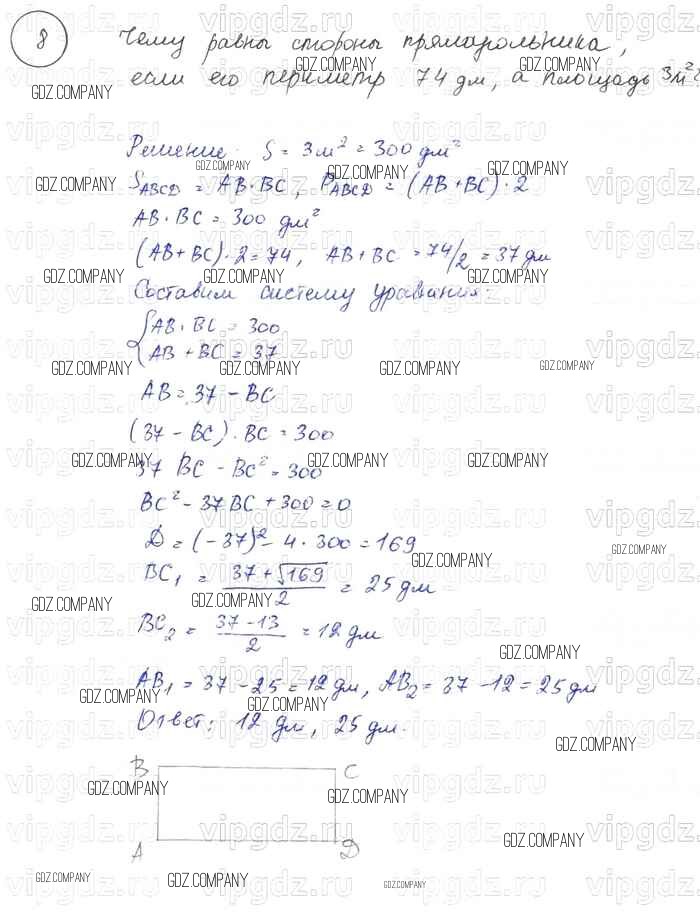 8
Чему равны стороны прямоугольника,
если его периметр 74 дм, а площадь 3 м²?
Решение. S = 3 м² = 300 дм²
S ABCD = AB · BC, P ABCD = (AB + BC) · 2
AB · BC = 300 дм²
(AB + BC) · 2 = 74, AB + BC = 74/2 = 37 дм
Составим систему уравания:
{ AB · BC = 300
AB + BC = 37
AB = 37 - BC
(37 - BC) · BC = 300
37 BC - BC² = 300
BC² - 37BC + 300 = 0
D = (-37)² - 4 · 300 = 169
BC₁ = (37 + √169) / 2 = 25 дм
BC₂ = (37 - 13) / 2 = 12 дм
AB₁ = 37 - 25 = 12 дм, AB₂ = 37 - 12 = 25 дм
Ответ: 12 дм, 25 дм.
B C
A D
vipgdz.ru
GDZ.COMPANY